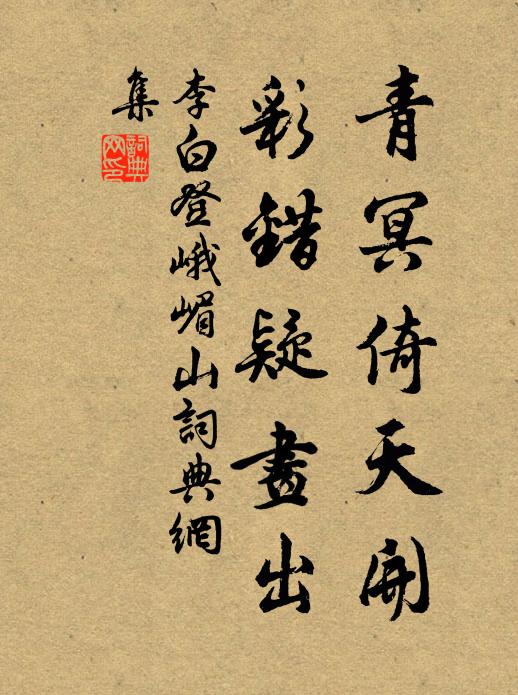 青冥倚天開
彩錯疑畫出
李白登峨嵋山詞典網
集
詞典
网印